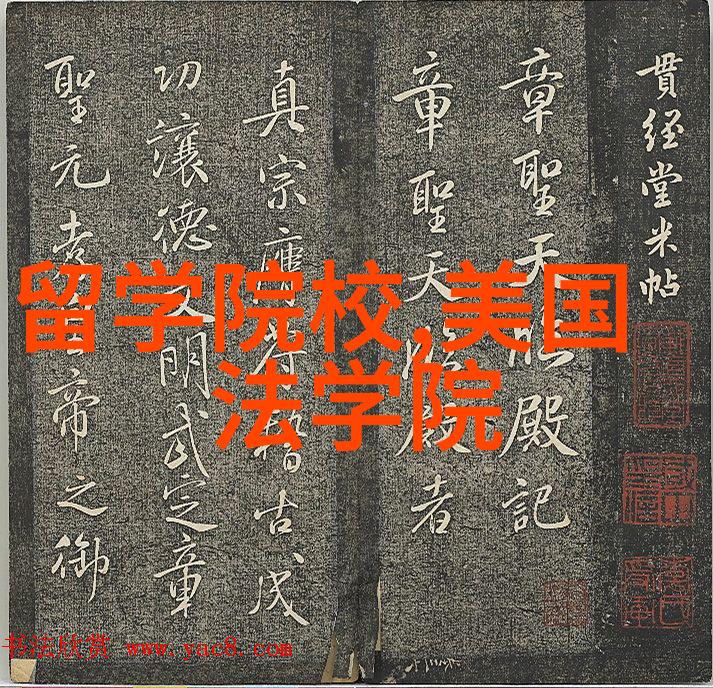 貫經堂米帖
章聖天臨殿記
章聖天臨殿者
真宗膺符稽古成
功讓德文明武定章
聖元孝皇帝之御
留学院校,美国
法学院
书法欣赏 www.yac8.com